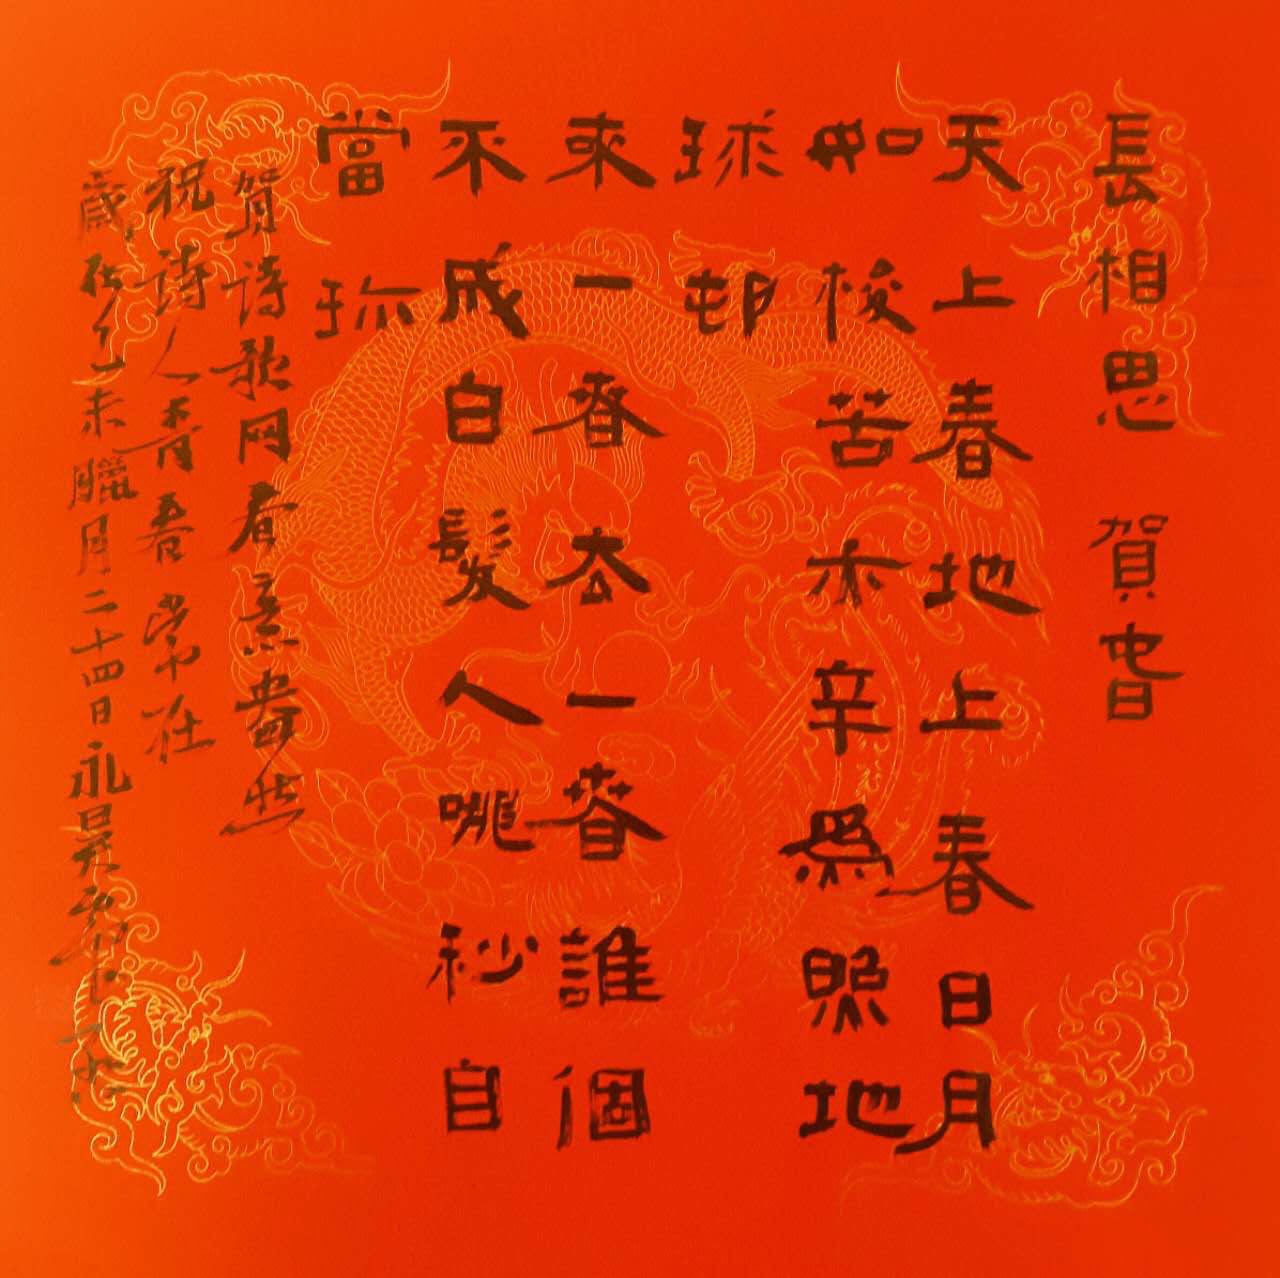 長相思 賀旾
天上春地上春日月
如梭苦亦辛爲照地
球邨
来一春去一春誰個
不成白髮人眺秒自
當珎
賀詩歌网春意盎然
祝詩人青春常在
歲次乙未臘月二十四日永昊